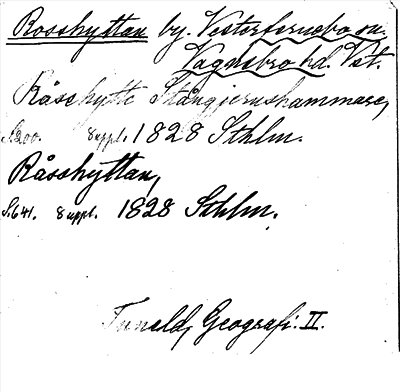 Rosshyttan by. Vesterfernebo sn.
Vagnsbro hd. Vstl.
Råsshytte Stångjernshammare,
S. 200. 8 uppl. 1828 Sthlm.
Råsshyttan,
S. 641. 8 uppl. 1828 Sthlm.
Tuneld, Geografi. II.